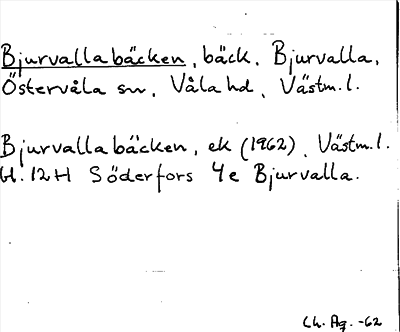 Bjurvallabäcken, bäck, Bjurvalla,
Östervåla sn, Våla hd, Västm. l.
Bjurvallabäcken, ek (1962), Västm. l.
bl. 12H Söderfors 4e Bjurvalla.
Ch. Ag. -62